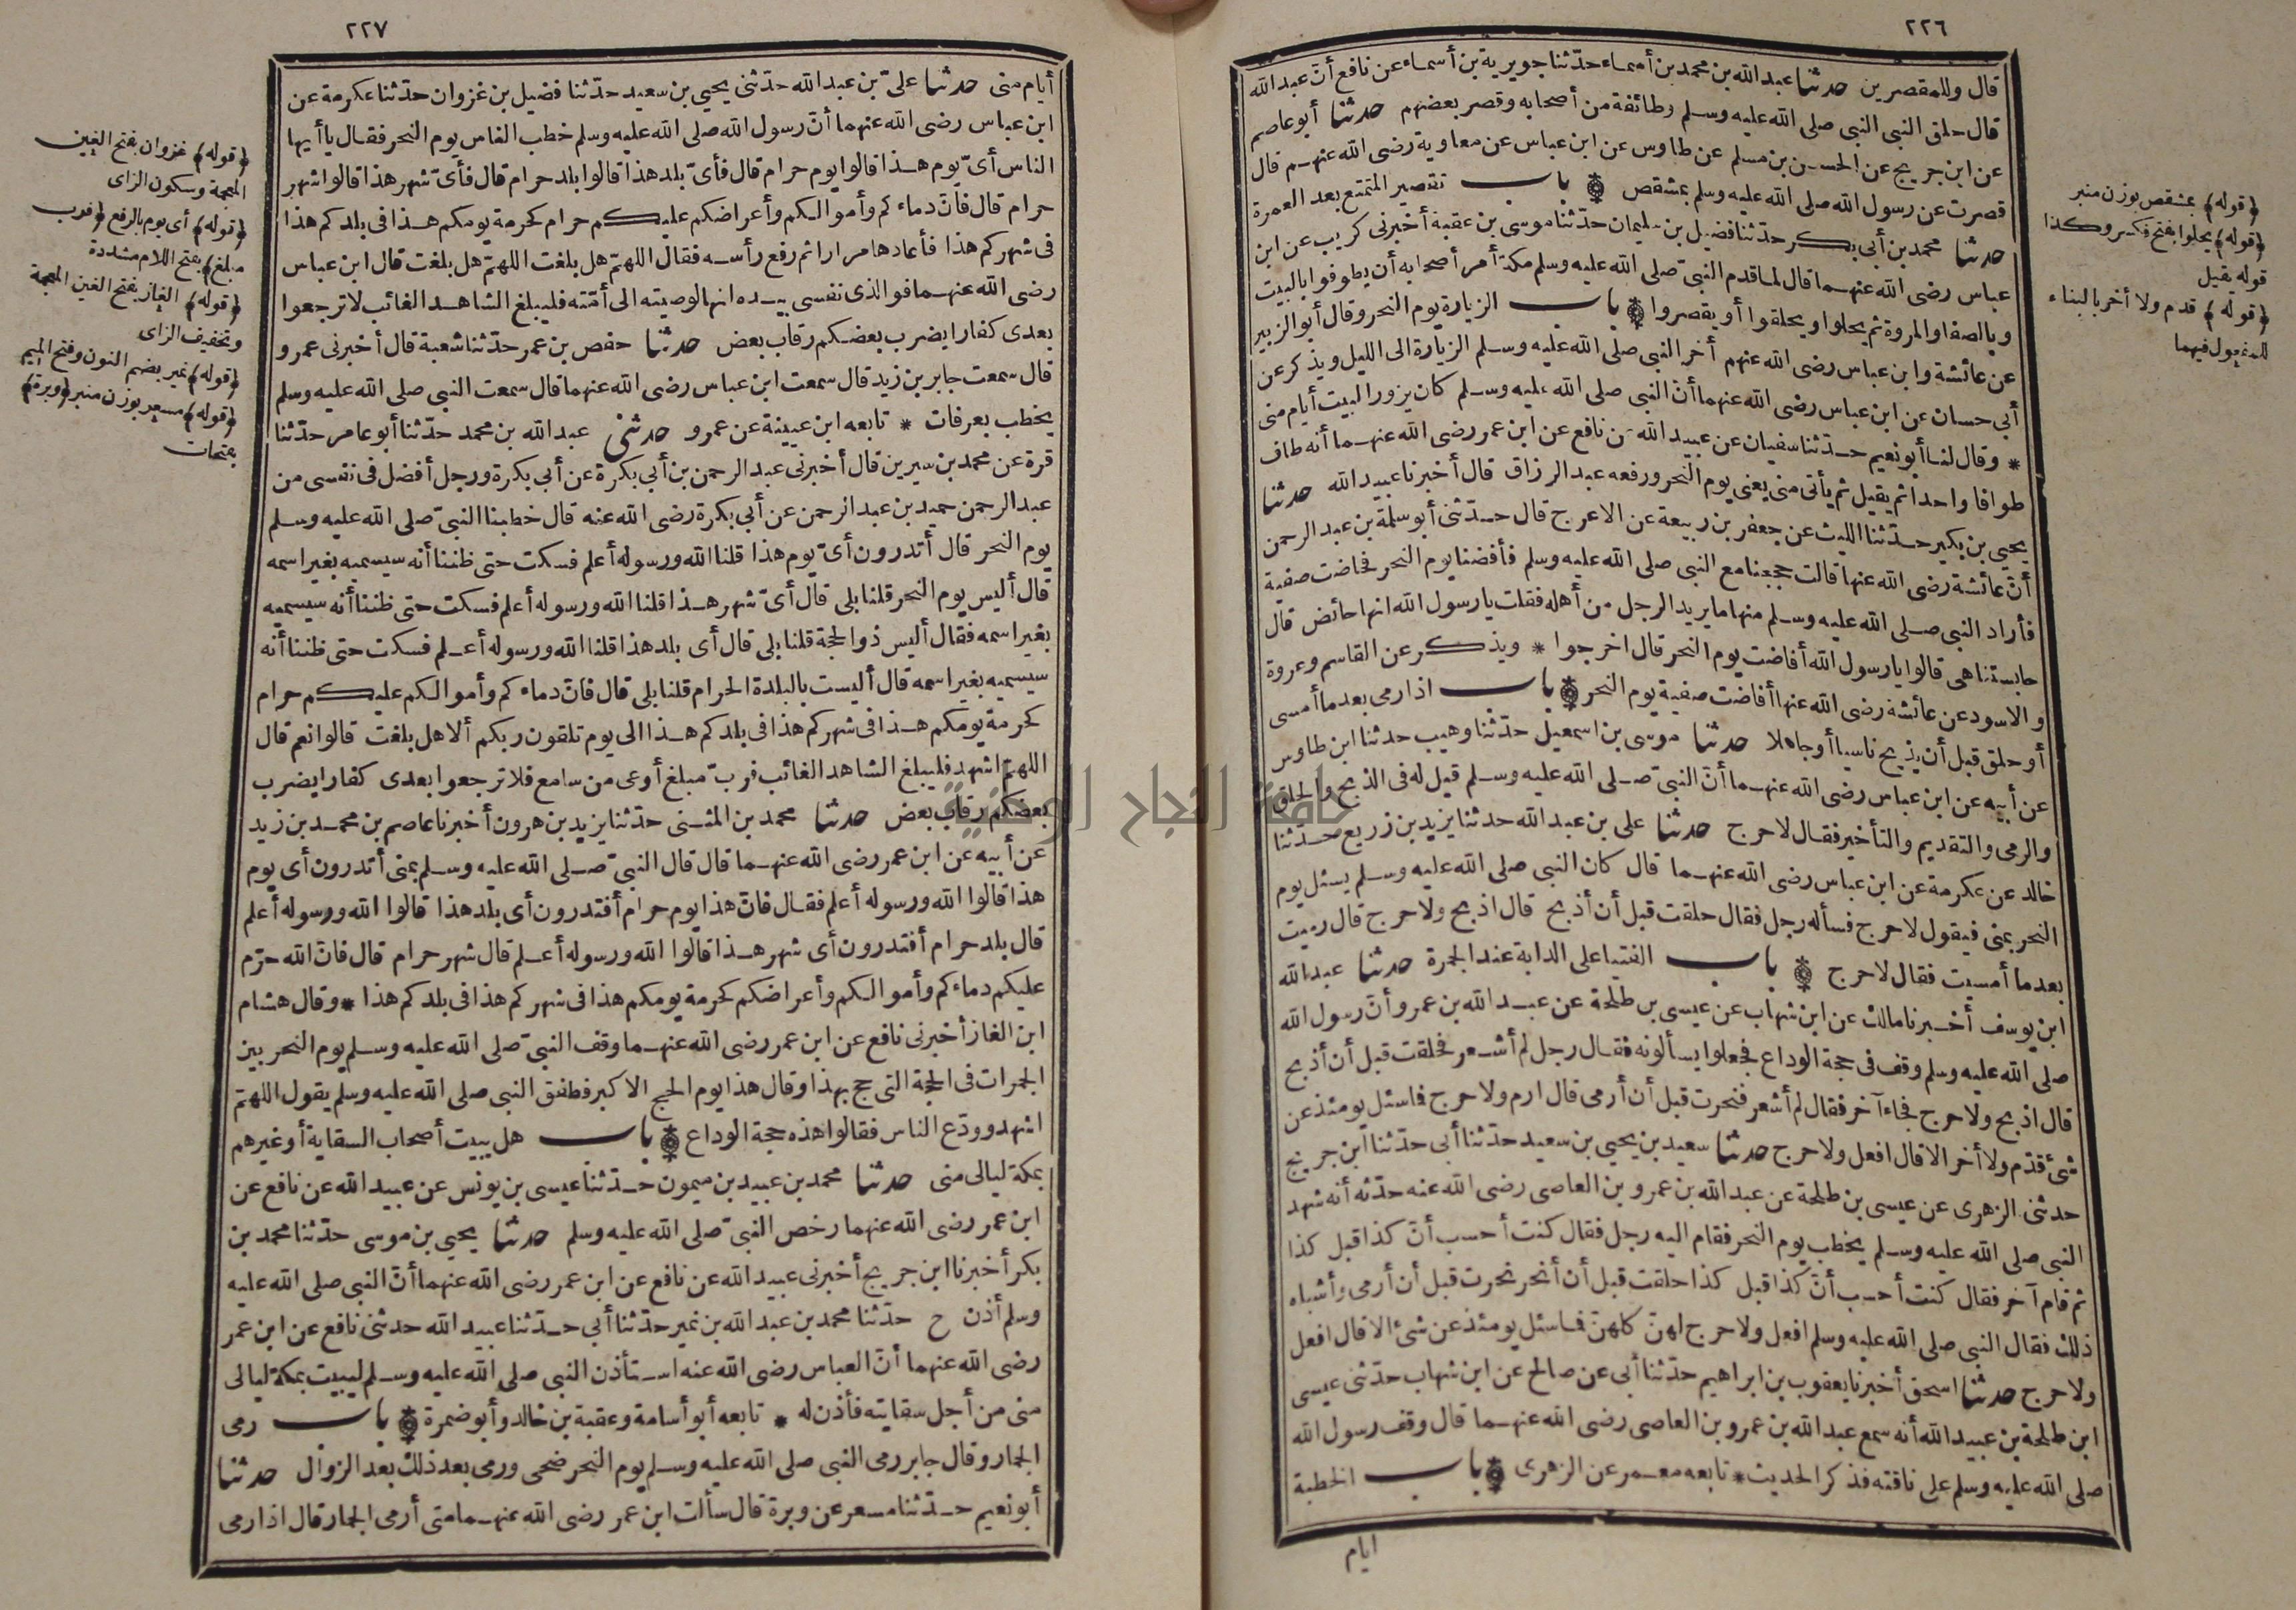 ٢٢٦
قال وللمقصرين حدثنا عبد الله بن محمد بن أسماء حدّثنا جويرية بن أسماء عن نافع أنّ عبد الله
قال حلق النبى صلى الله عليه وسلم وطائفة من أصحابه وقصر بعضهم حدثنا أبو عاصم
عن ابن جريج عن الحسن بن مسلم عن طاوس عن ابن عباس عن معاوية رضى الله عنهم قال
قصرت عن رسول الله صلى الله عليه وسلم بمشقص باب تقصير المتمتع بعد العمرة
حدثنا محمد بن أبى بكر حدّثنا فضيل بن سليمان حدّثنا موسى بن عقبة أخبرنى كريب عن ابن
عباس رضى الله عنهما قال لما قدم النبىّ صلى الله عليه وسلم مكة أمر أصحابه أن يطوفوا بالبيت
وبالصفا والمروة ثم يحلوا ويحلقوا أو يقصروا باب الزيارة يوم النحر وقال أبو الزبير
عن عائشة وابن عباس رضى الله عنهم أخر النبى صلى الله عليه وسلم الزيارة الى الليل ويذكر عن
أبى حسان عن ابن عباس رضى الله عنهما أنّ النبى صلى الله عليه وسلم كان يزور البيت أيام منى
* وقال لنا أبو نعيم حدّثنا سفيان عن عبيد الله عن نافع عن ابن عمر رضى الله عنهما أنه طاف
طوافا واحدا ثم يقيل ثم يأتى منى يعنى يوم النحر ورفعه عبد الرزاق قال أخبرنا عبيد الله حدثنا
يحيى بن بكير حدّثنا الليث عن جعفر بن ربيعة عن الاعرج قال حدّثنى أبو سلمة بن عبد الرحمن
أنّ عائشة رضى الله عنها قالت حججنا مع النبى صلى الله عليه وسلم فأفضنا يوم النحر فحاضت صفية
فأراد النبى صلى الله عليه وسلم منها ما يريد الرجل من أهله فقلت يا رسول الله انها حائض قال
حابستنا هى قالوا يا رسول الله أفاضت يوم النحر قال اخرجوا * ويذكر عن القاسم وعروة
والاسود عن عائشة رضى الله عنها أفاضت صفية يوم النحر باب اذا رمى بعد ما أمسى
أو حلق قبل أن يذبح ناسيا أو جاهلا حدثنا موسى بن اسمعيل حدّثنا وهيب حدثنا ابن طاوس
عن أبيه عن ابن عباس رضى الله عنهما أنّ النبىّ صلى الله عليه وسلم قيل له فى الذبح والحلق
والرمى والتقديم والتأخير فقال لا حرج حدثنا على بن عبد الله حدثنا يزيد بن زريع حدّثنا
خالد عن عكرمة عن ابن عباس رضى الله عنهما قال كان النبى صلى الله عليه وسلم يسئل يوم
النحر بمنى فيقول لا حرج فسأله رجل فقال حلقت قبل أن أذبح قال اذبح ولا حرج قال رميت
بعد ما أمسيت فقال لا حرج باب الفتيا على الدابة عند الجمرة حدثنا عبد الله
ابن يوسف أخبرنا مالك عن ابن شهاب عن عيسى بن طلحة عن عبد الله بن عمرو أنّ رسول الله
صلى الله عليه وسلم وقف فى حجة الوداع فجعلوا يسألونه فقال رجل لم أشعر فحلقت قبل أن أذبح
قال اذبح ولا حرج فجاء آخر فقال لم أشعر فنحرت قبل أن أرمى قال ارم ولا حرج فما سئل يومئذ عن
شئ قدّم ولا أخر الا قال افعل ولا حرج حدثنا سعيد بن يحيى بن سعيد حدّثنا أبى حدّثنا ابن جريج
حدثنى الزهرى عن عيسى بن طلحة عن عبد الله بن عمرو بن العاصى رضى الله عنه حدّثه أنه شهد
النبى صلى الله عليه وسلم يخطب يوم النحر فقام اليه رجل فقال كنت أحسب أنّ كذا قبل كذا
ثم قام آخر فقال كنت أحسب أنّ كذا قبل كذا حلقت قبل أن أنحر نحرت قبل أن أرمى وأشباه
ذلك فقال النبى صلى الله عليه وسلم افعل ولا حرج لهنّ كلهنّ فما سئل يومئذ عن شئ الا قال افعل
ولا حرج حدثنا اسحق أخبرنا يعقوب بن ابراهيم حدّثنا أبى عن صالح عن ابن شهاب حدّثنى عيسى
ابن طلحة بن عبيد الله أنه سمع عبد الله بن عمرو بن العاصى رضى الله عنهما قال وقف رسول الله
صلى الله عليه وسلم على ناقته فذكر الحديث * تابعه معمر عن الزهرى باب الخطبة
ايام
(قوله) بمشقص بوزن منبر
(قوله) يحلوا بفتح فكسر وكذا
قوله يقيل
(قوله) قدم ولا أخر بالبناء
للمفعول فيهما
٢٢٧
أيام منى حدثنا علىّ بن عبد الله حدّثنى يحيى بن سعيد حدّثنا فضيل بن غزوان حدّثنا عكرمة عن
ابن عباس رضى الله عنهما أنّ رسول الله صلى الله عليه وسلم خطب الناس يوم النحر فقال يا أيها
الناس أىّ يوم هذا قالوا يوم حرام قال فأىّ بلد هذا قالوا بلد حرام قال فأىّ شهر هذا قالوا شهر
حرام قال فانّ دماءكم وأموالكم وأعراضكم عليكم حرام كحرمة يومكم هذا فى بلدكم هذا
فى شهركم هذا فأعادها مرارا ثم رفع رأسه فقال اللهمّ هل بلغت اللهمّ هل بلغت قال ابن عباس
رضى الله عنهما فوالذى نفسى بيده انها لوصيته الى أمّته فليبلغ الشاهد الغائب لا ترجعوا
بعدى كفارا يضرب بعضكم رقاب بعض حدثنا حفص بن عمر حدّثنا شعبة قال أخبرنى عمرو
قال سمعت جابر بن زيد قال سمعت ابن عباس رضى الله عنهما قال سمعت النبى صلى الله عليه وسلم
يخطب بعرفات * تابعه ابن عيينة عن عمرو حدثنى عبد الله بن محمد حدّثنا أبو عامر حدّثنا
قرة عن محمد بن سيرين قال أخبرنى عبد الرحمن بن أبى بكرة عن أبى بكرة ورجل أفضل فى نفسى من
عبد الرحمن حميد بن عبد الرحمن عن أبى بكرة رضى الله عنه قال خطبنا النبىّ صلى الله عليه وسلم
يوم النحر قال أتدرون أىّ يوم هذا قلنا الله ورسوله أعلم فسكت حتى ظننا أنه سيسميه بغير اسمه
قال أليس يوم النحر قلنا بلى قال أىّ شهر هذا قلنا الله ورسوله أعلم فسكت حتى ظننا أنه سيسميه
بغير اسمه فقال أليس ذو الحجة قلنا بلى قال أى بلد هذا قلنا الله ورسوله أعلم فسكت حتى ظننا أنه
سيسميه بغير اسمه قال أليست بالبلدة الحرام قلنا بلى قال فانّ دماءكم وأموالكم عليكم حرام
كحرمة يومكم هذا فى شهركم هذا فى بلدكم هذا الى يوم تلقون ربكم ألا هل بلغت قالوا نعم قال
اللهمّ اشهد فليبلغ الشاهد الغائب فربّ مبلغ أوعى من سامع فلا ترجعوا بعدى كفارا يضرب
بعضكم رقاب بعض حدثنا محمد بن المثنى حدّثنا يزيد بن هرون أخبرنا عاصم بن محمد بن زيد
عن أبيه عن ابن عمر رضى الله عنهما قال قال النبىّ صلى الله عليه وسلم بمنى أتدرون أى يوم
هذا قالوا الله ورسوله أعلم فقال فانّ هذا يوم حرام أفتدرون أى بلد هذا قالوا الله ورسوله أعلم
قال بلد حرام أفتدرون أى شهر هذا قالوا الله ورسوله أعلم قال شهر حرام قال فانّ الله حرّم
عليكم دماءكم وأموالكم وأعراضكم كحرمة يومكم هذا فى شهركم هذا فى بلدكم هذا * وقال هشام
ابن الغاز أخبرنى نافع عن ابن عمر رضى الله عنهما وقف النبىّ صلى الله عليه وسلم يوم النحر بين
الجمرات فى الحجة التى حج بهذا وقال هذا يوم الحج الاكبر فطفق النبى صلى الله عليه وسلم يقول اللهمّ
اشهد وودّع الناس فقالوا هذه حجة الوداع باب هل يبيت أصحاب السقاية أو غيرهم
بمكة ليالى منى حدثنا محمد بن عبيد بن ميمون حدّثنا عيسى بن يونس عن عبيد الله عن نافع عن
ابن عمر رضى الله عنهما رخص النبىّ صلى الله عليه وسلم حدثنا يحيى بن موسى حدّثنا محمد بن
بكر أخبرنا ابن جريج أخبرنى عبيد الله عن نافع عن ابن عمر رضى الله عنهما أنّ النبى صلى الله عليه
وسلم أذن ح حدّثنا محمد بن عبد الله بن نمير حدّثنا أبى حدّثنا عبيد الله حدثنى نافع عن ابن عمر
رضى الله عنهما أنّ العباس رضى الله عنه استأذن النبى صلى الله عليه وسلم ليبيت بمكة ليالى
منى من أجل سقايته فأذن له * تابعه أبو أسامة وعقبة بن خالد وأبو ضمرة باب رمى
الجمار وقال جابر رمى النبى صلى الله عليه وسلم يوم النحر ضحى ورمى بعد ذلك بعد الزوال حدثنا
أبو نعيم حدّثنا مسعر عن وبرة قال سألت ابن عمر رضى الله عنهما متى أرمى الجمار قال اذا رمى
(قوله) غزوان بفتح الغين
المعجمة وسكون الزاى
(قوله) أى يوم بالرفع (فرب
مبلغ) بفتح اللام مشددة
(قوله) الغاز بفتح الغين المعجمة
وتخفيف الزاى
(قوله) نمير بضم النون وفتح الميم
(قوله) مسعر بوزن منبر (وبرة)
بفتحات